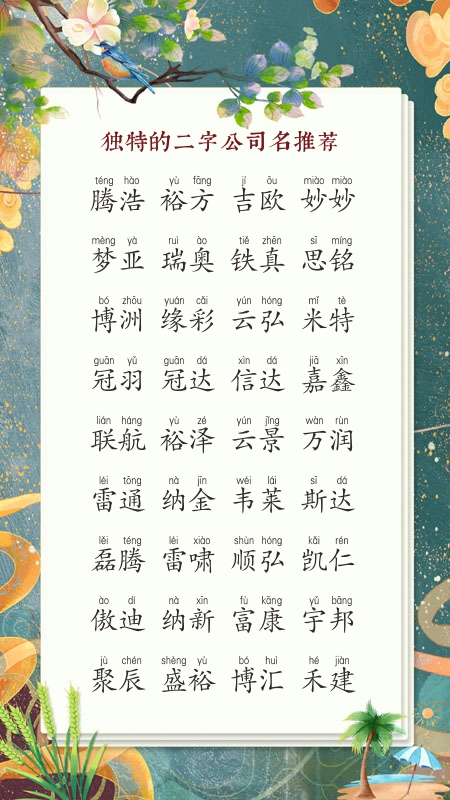 独特的二字公司名推荐
téng hào yù fāng jí ōu miào miào
腾浩 裕方 吉欧 妙妙
mèng yà ruì ào tiě zhēn sī míng
梦亚 瑞奥 铁真 思铭
bó zhōu yuán cǎi yún hóng mǐ tè
博洲 缘彩 云弘 米特
guān yǔ guān dá xìn dá jiā xīn
冠羽 冠达 信达 嘉鑫
lián háng yù zé yún jǐng wàn rùn
联航 裕泽 云景 万润
léi tōng nà jīn wéi lái sī dá
雷通 纳金 韦莱 斯达
lěi téng léi xiào shùn hóng kǎi rén
磊腾 雷啸 顺弘 凯仁
ào dí nà xīn fù kāng yǔ bāng
傲迪 纳新 富康 宇邦
jù chén shèng yù bó huì hé jiàn
聚辰 盛裕 博汇 禾建